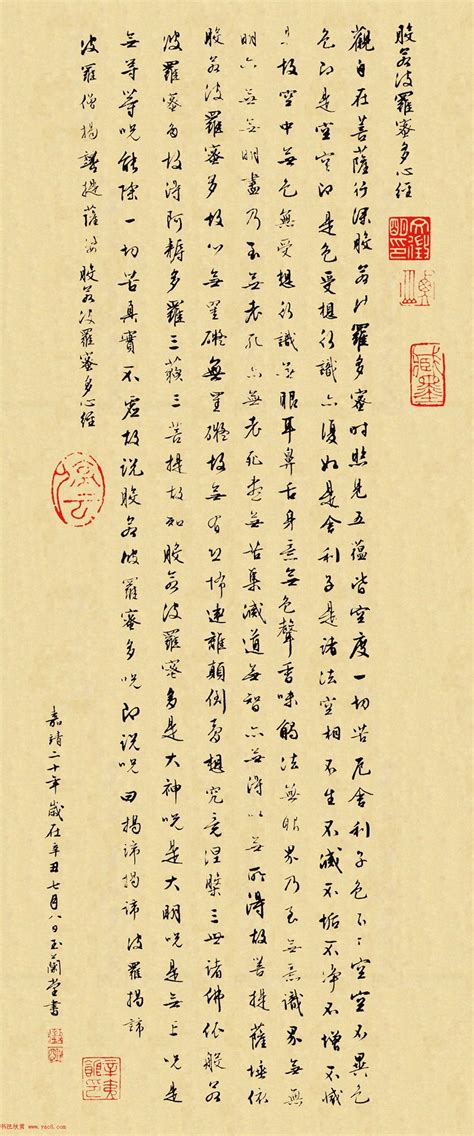 般若波羅蜜多心經
觀自在菩薩行深般若波羅多蜜時照見五蘊皆空度一切苦厄舍利子色不異空空不異色
色即是空空即是色受想行識亦復如是舍利子是諸法空相不生不滅不垢不淨不增不減
是故空中無色無受想行識無眼耳鼻舌身意無色聲香味觸法無眼界乃至無意識界無無
明亦無無明盡乃至無老死亦無老死盡無苦集滅道無智亦無得以無所得故菩提薩埵依
般若波羅蜜多故心無罣礙無罣礙故無有恐怖遠離顛倒夢想究竟涅槃三世諸佛依般若
波羅蜜多故得阿耨多羅三藐三菩提故知般若波羅蜜多是大神咒是大明咒是無上咒是
無等等咒能除一切苦真實不虛故說般若波羅蜜多咒即說咒曰揭諦揭諦波羅揭諦
波羅僧揭諦提薩婆 般若波羅蜜多心經
嘉靖二十年歲在辛丑七月八日玉蘭堂書
书法欣赏 www.yac8.com